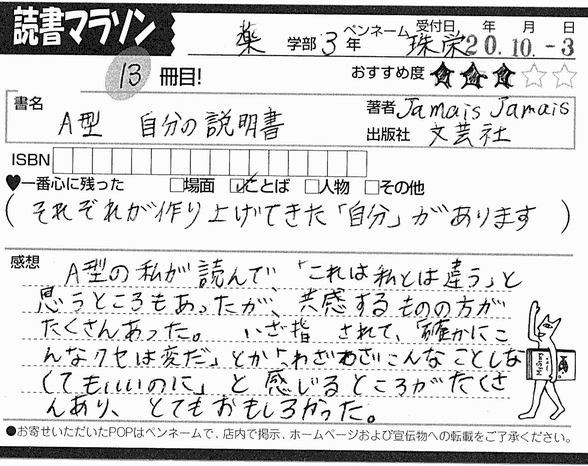 読書マラソン
薬 学部 3 年 ペンネーム 珠栄 受付日 年 月 日 20.10.-3
13 冊目! おすすめ度 ★★★☆☆
書名 A型 自分の説明書
著者 Jamais Jamais
出版社 文芸社
ISBN
♥一番心に残った □場面 ☑ことば □人物 □その他
(それぞれが作り上げてきた「自分」があります)
感想 A型の私が読んで、「これは私とは違う」と
思うところもあったが、共感するものの方が
たくさんあった。 いざ指 されて、「確かにこ
んなクセは変だ」とか「わざわざこんなことしな
くてもいいのに」と感じるところがたくさ
んあり、とてもおもしろかった。
●お寄せいただいたPOPはペンネームで、店内で掲示、ホームページおよび宣伝物への転載をご了承ください。